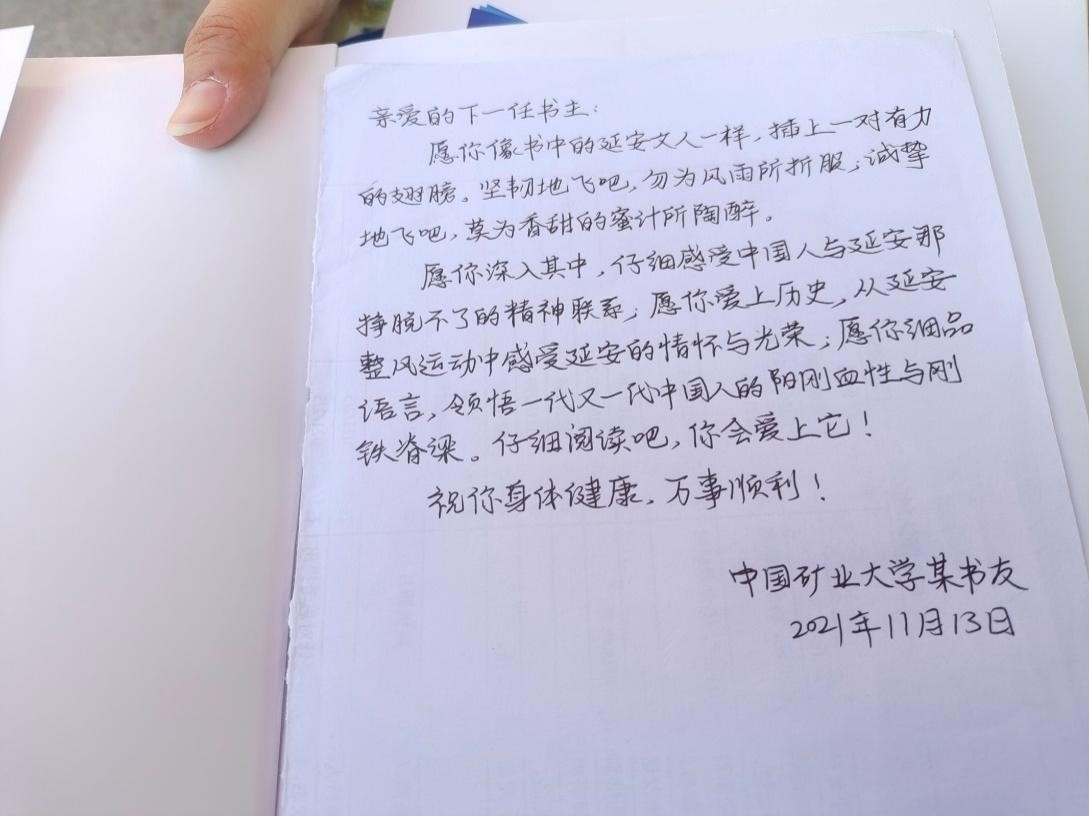 亲爱的下一任书主：
愿你像书中的延安文人一样，插上一对有力
的翅膀。坚韧地飞吧，勿为风雨所折服；诚挚
地飞吧，莫为香甜的蜜计所陶醉。
愿你深入其中，仔细感受中国人与延安那
挣脱不了的精神联系；愿你爱上历史，从延安
整风运动中感受延安的情怀与光荣；愿你细品
语言，领悟一代又一代中国人的阳刚血性与刚
铁脊梁。仔细阅读吧，你会爱上它！
祝你身体健康，万事顺利！
中国矿业大学某书友
2021年11月13日